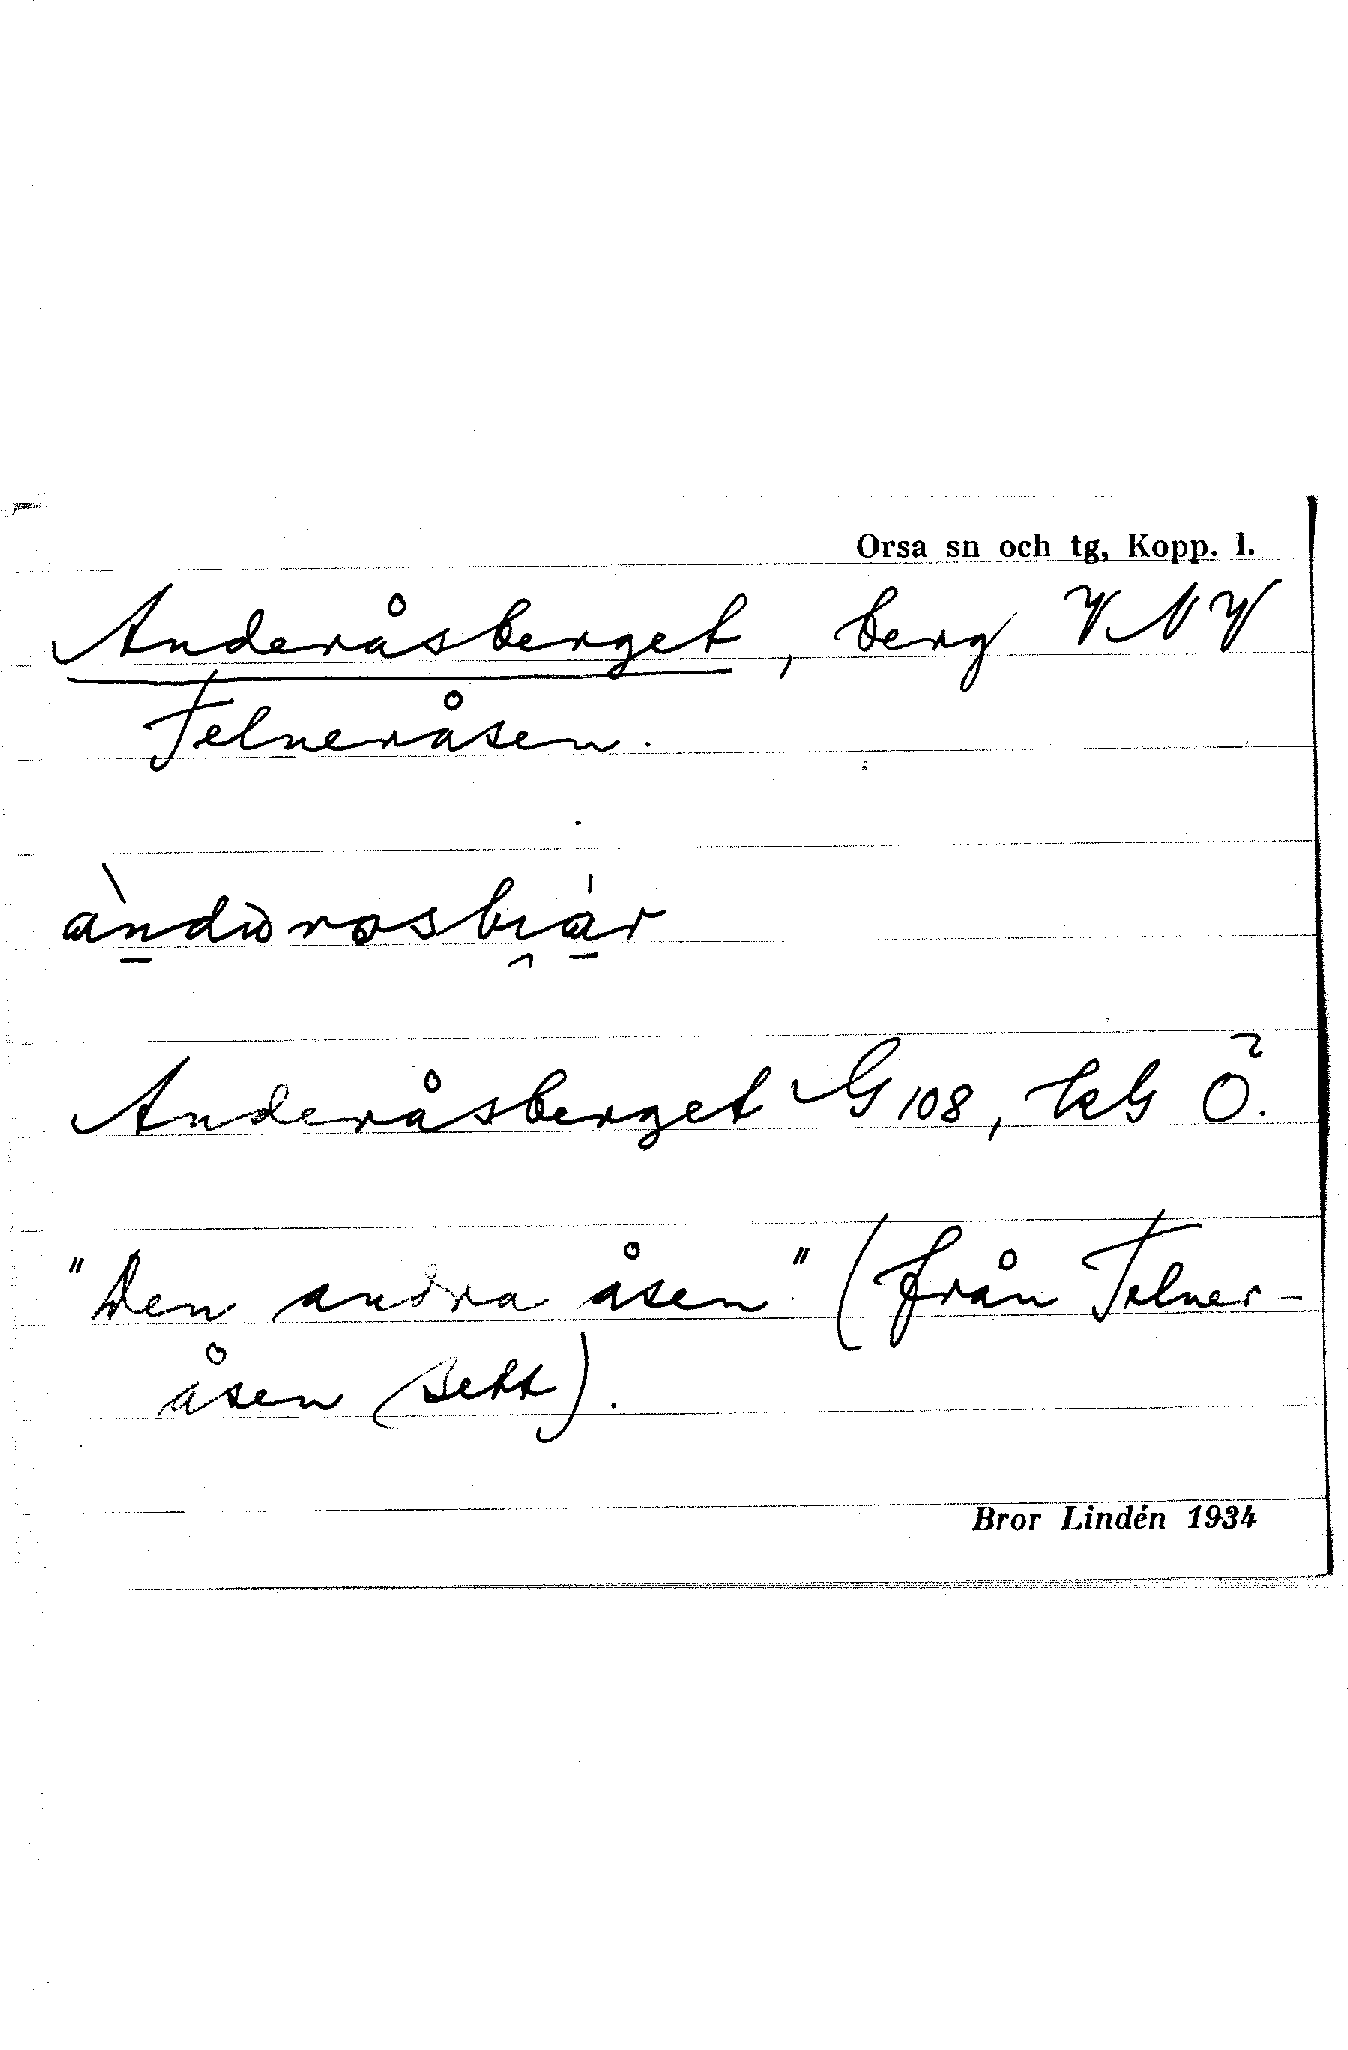 Orsa sn och tg, Kopp. l.
Anderåsberget, berg VNV
Telneråsen.
Anderåsberget G 108, kG Ö.
"Den andra åsen" (från Telner-
åsen sett).
Bror Lindén 1934